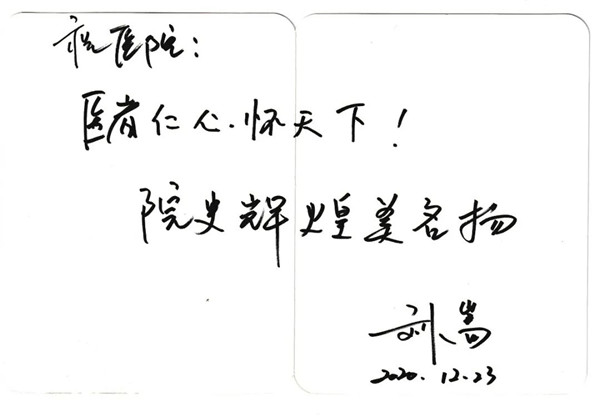 祝医院：
医者仁心.怀天下！
院史辉煌美名扬
刘嵩
2020.12.23